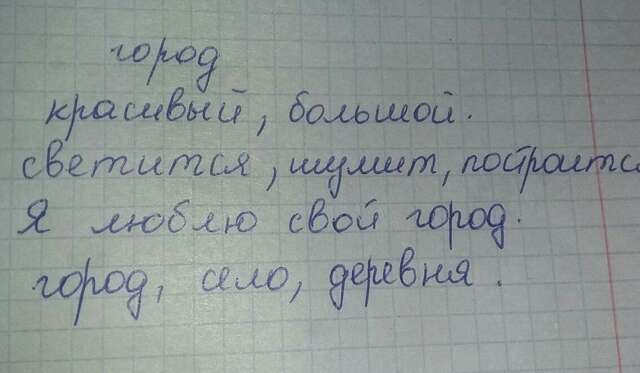 город
красивый, большой.
светится, шумит, построится
Я люблю свой город.
город, село, деревня.